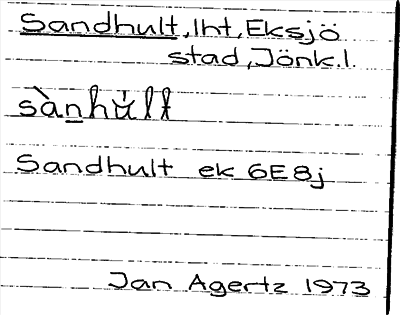 Sandhult, lht, Eksjö
stad, Jönk.l.
Sandhult ek 6E8j
Jan Agertz 1973